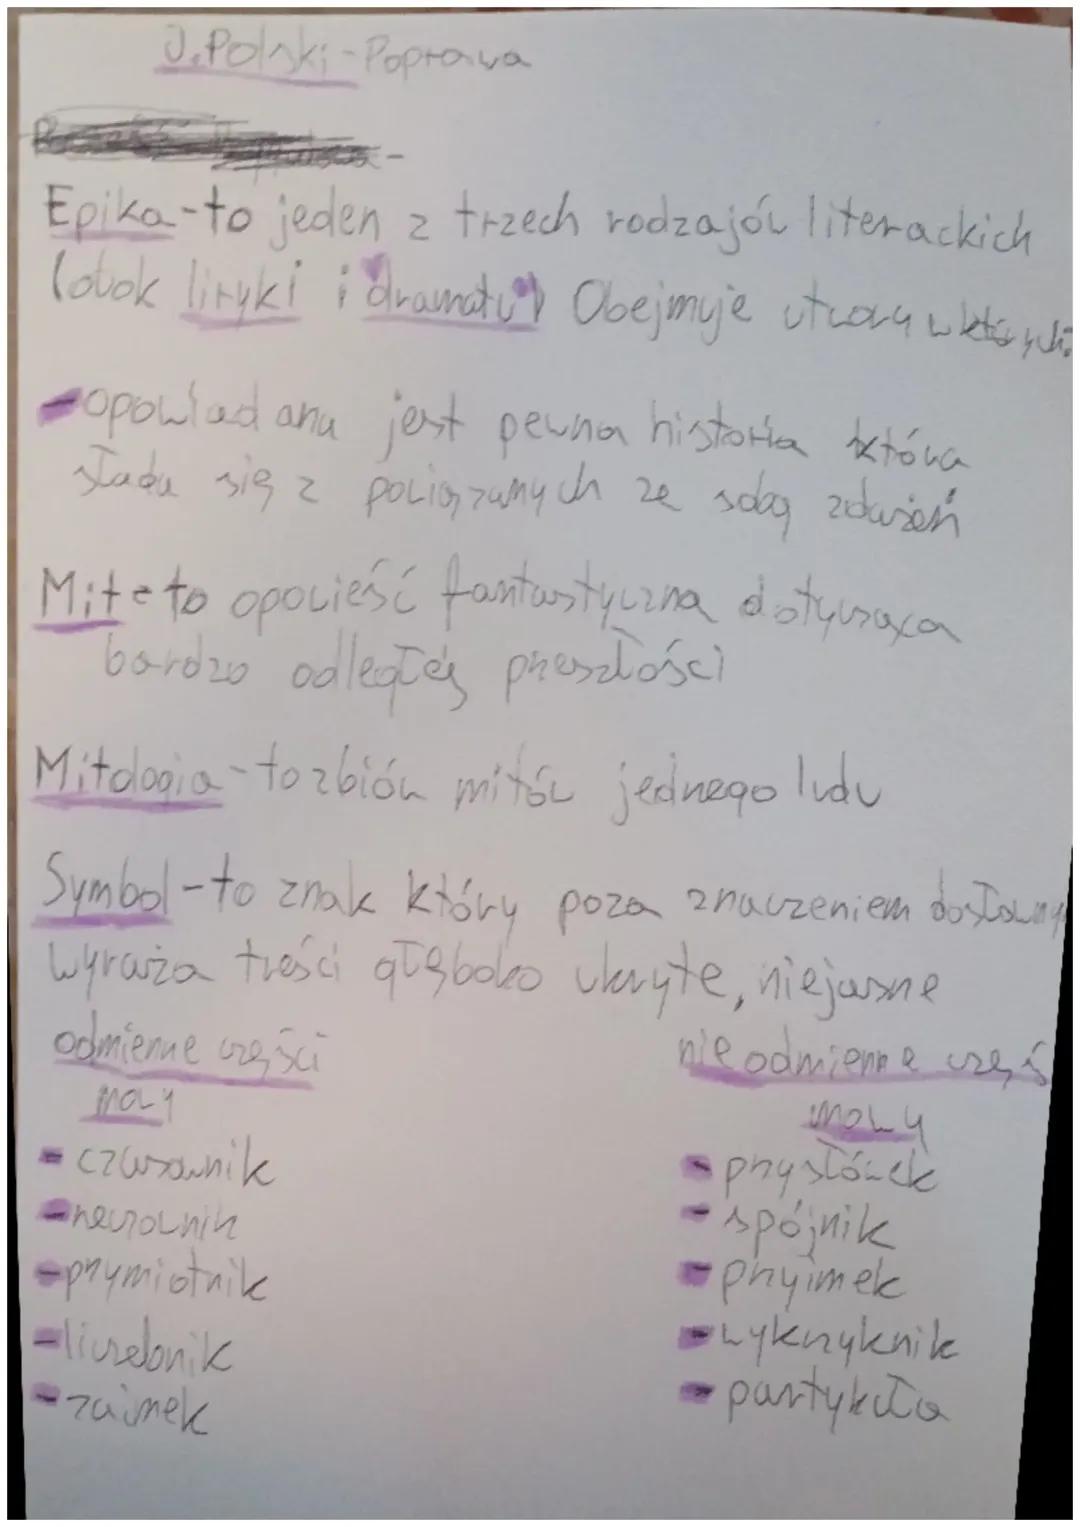 J. Polski - Poprawa
Epika - to jeden z trzech rodzajów literackich
(obok liryki i dramatu) Obejmuje utwory w których:
- opowiadana jest pewna historia która
składa się z powiązanych ze sobą zdarzeń
Mit - to opowieść fantastyczna dotycząca
bardzo odległej przeszłości
Mitologia - to zbiór mitów jednego ludu
Symbol - to znak który poza znaczeniem dosłowny
wyraża treści głęboko ukryte, niejasne
odmienne części
mowy
- czasownik
- rzeczownik
- przymiotnik
- liczebnik
- zaimek
nieodmienne częś
mowy
- przysłówek
- spójnik
- przyimek
- wykrzyknik
- partykuła